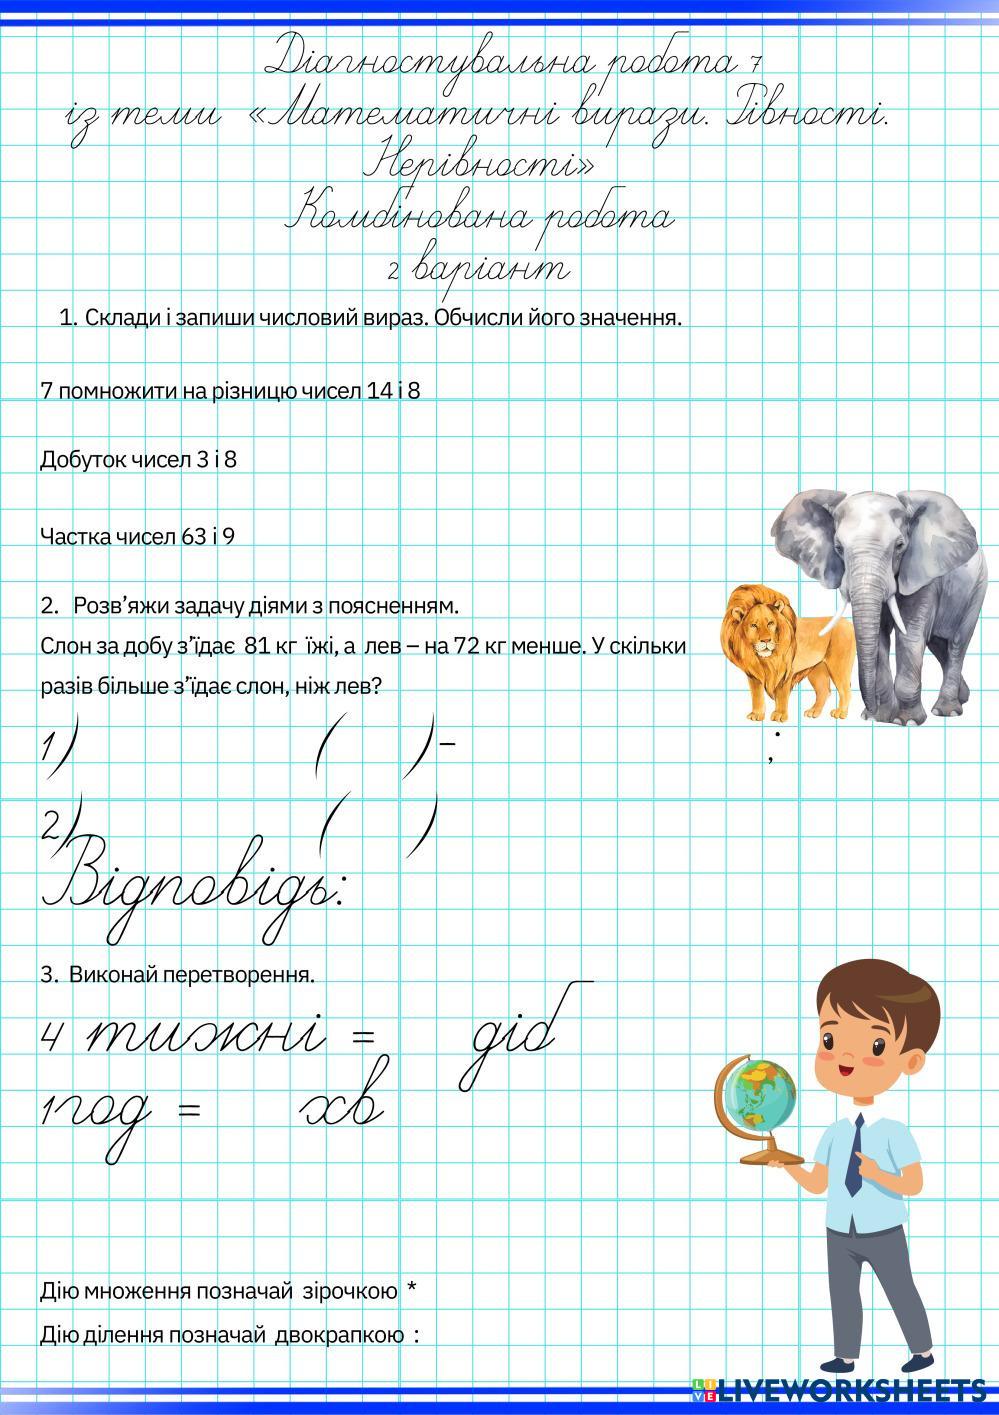 Діагностувальна робота 7
із теми «Математичні вирази. Рівності.
Нерівності»
Комбінована робота
2 варіант
1. Склади і запиши числовий вираз. Обчисли його значення.
7 помножити на різницю чисел 14 і 8
Добуток чисел 3 і 8
Частка чисел 63 і 9
2. Розв’яжи задачу діями з поясненням.
Слон за добу з’їдає 81 кг їжі, а лев – на 72 кг менше. У скільки
разів більше з’їдає слон, ніж лев?
1) ( ) – ;
2) ( )
Відповідь:
3. Виконай перетворення.
4 тижні = діб
1год = хв
Дію множення позначай зірочкою *
Дію ділення позначай двокрапкою :
LIVE LIVEWORKSHEETS